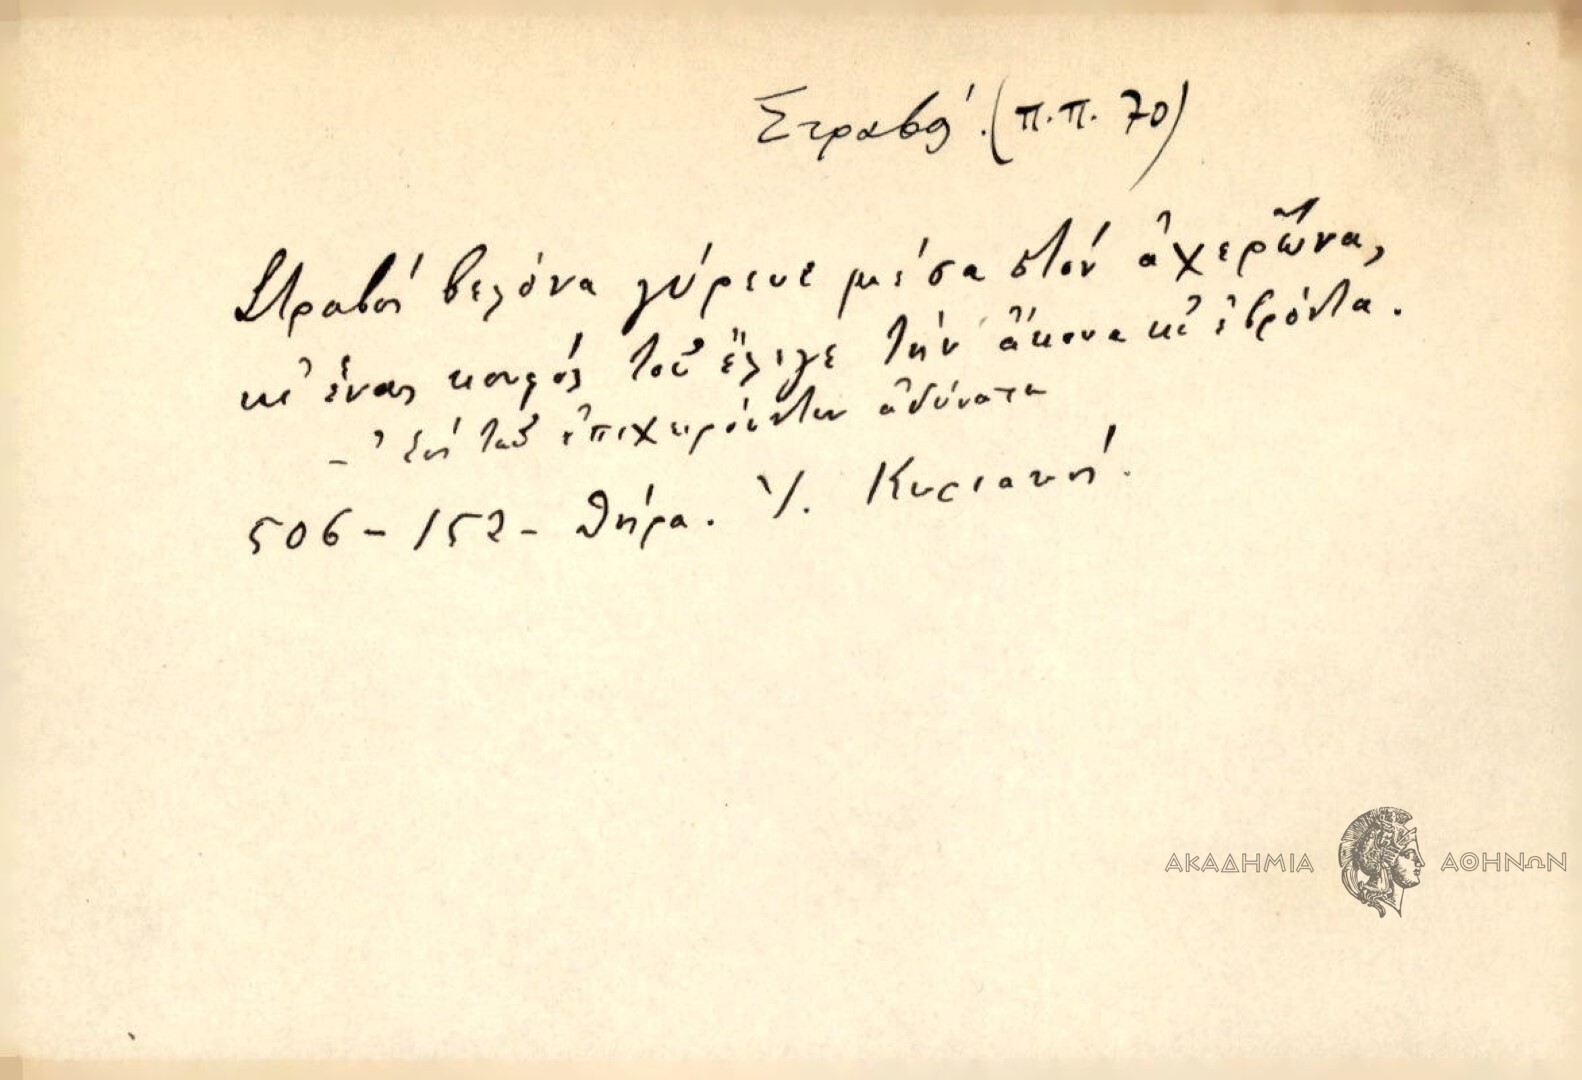 Στραβό. (π.π. 70)
Στραβός βελόνα γύρευε μέσα στὸν ἀχερῶνα,
κι' ἕνας κουφός τοῦ ἔλεγε τὴν ἄκουα κι' ἐβρόντα.
- Ἐπί τῶν ἐπιχειρούντων ἀδύνατα
506 - 152 - Θήρα. Ι. Κυριακή.
ΑΚΑΔΗΜΙΑ ΑΘΗΝΩΝ